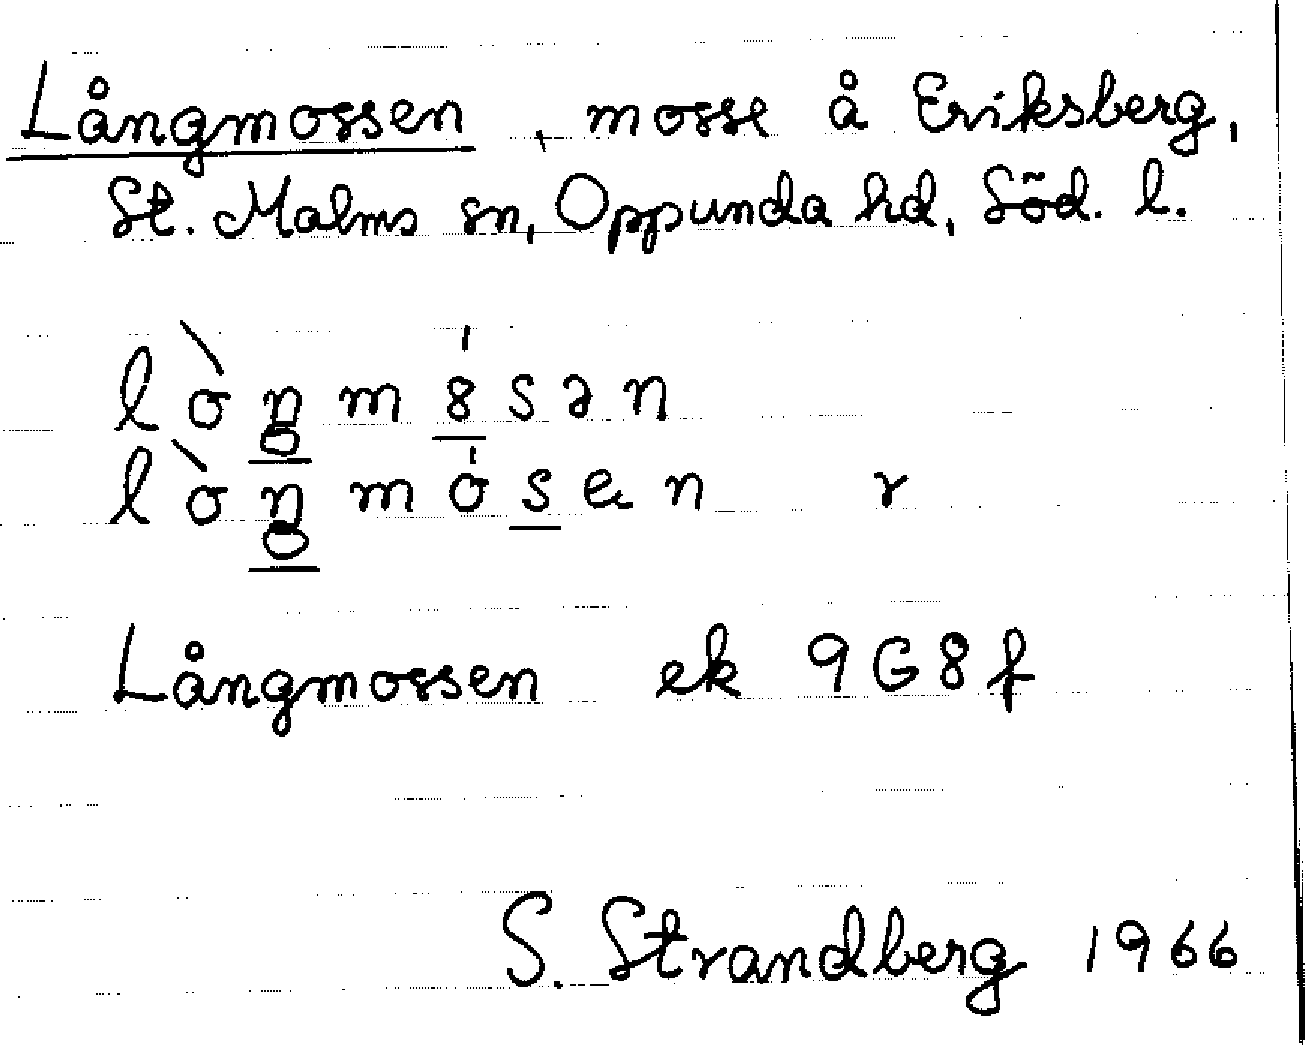 Långmossen, mosse å Eriksberg,
St. Malms sn, Oppunda hd, Söd. l.
lòŋm8́sən
lòŋmósen r
Långmossen ek 9G8f
S. Strandberg 1966